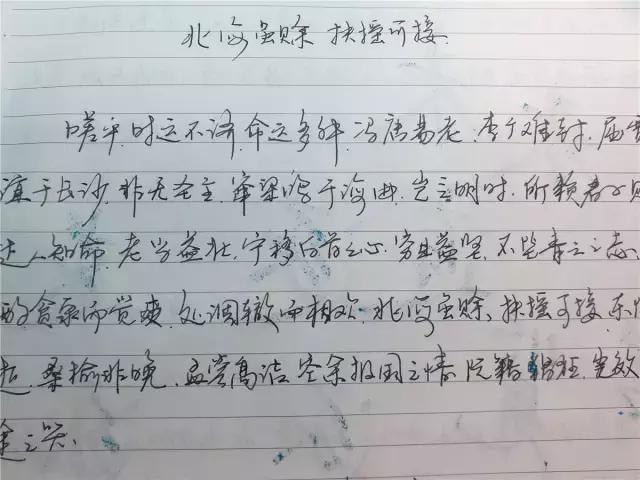 北海虽赊 扶摇可接.
嗟乎.时运不济.命运多舛.冯唐易老.李广难封.屈贾
谊于长沙.非无圣主.窜梁鸿于海曲.岂乏明时.所赖君子见
达人知命.老当益壮.宁移白首之心.穷且益坚.不坠青云之志.
酌贪泉而觉爽.处涸辙而相欢.北海虽赊.扶摇可接.东隅
逝.桑榆非晚.孟尝高洁.空余报国之情.阮籍猖狂.岂效
途之哭.